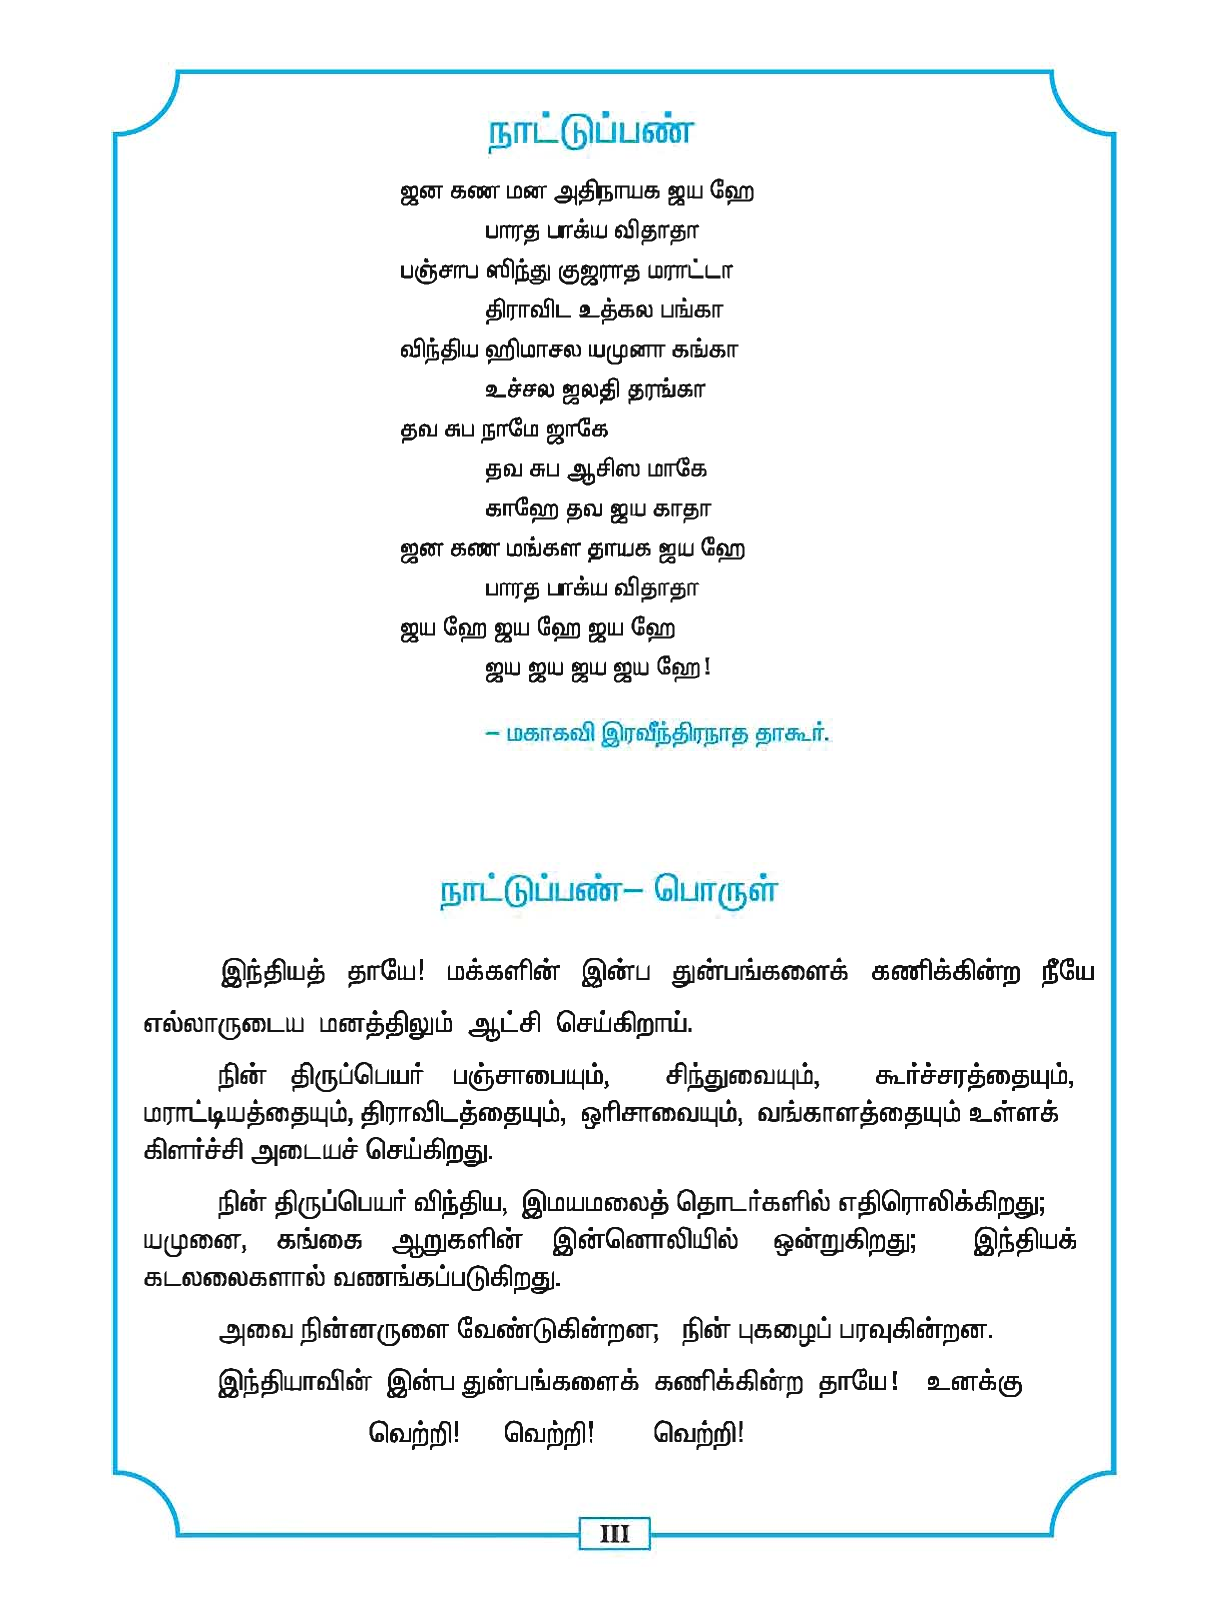 நாட்டுப்பண்
ஜன கண மன அதிநாயக ஜய ஹே
பாரத பாக்ய விதாதா
பஞ்சாப ஸிந்து குஜராத மராட்டா
திராவிட உத்கல பங்கா
விந்திய ஹிமாசல யமுனா கங்கா
உச்சல ஜலதி தரங்கா
தவ சுப நாமே ஜாகே
தவ சுப ஆசிஸ மாகே
காஹே தவ ஜய காதா
ஜன கண மங்கள தாயக ஜய ஹே
பாரத பாக்ய விதாதா
ஜய ஹே ஜய ஹே ஜய ஹே
ஜய ஜய ஜய ஜய ஹே!
– மகாகவி இரவீந்திரநாத தாகூர்.
நாட்டுப்பண்– பொருள்
இந்தியத் தாயே! மக்களின் இன்ப துன்பங்களைக் கணிக்கின்ற நீயே
எல்லாருடைய மனத்திலும் ஆட்சி செய்கிறாய்.
நின் திருப்பெயர் பஞ்சாபையும், சிந்துவையும், கூர்ச்சரத்தையும்,
மராட்டியத்தையும், திராவிடத்தையும், ஒரிசாவையும், வங்காளத்தையும் உள்ளக்
கிளர்ச்சி அடையச் செய்கிறது.
நின் திருப்பெயர் விந்திய, இமயமலைத் தொடர்களில் எதிரொலிக்கிறது;
யமுனை, கங்கை ஆறுகளின் இன்னொலியில் ஒன்றுகிறது; இந்தியக்
கடலலைகளால் வணங்கப்படுகிறது.
அவை நின்னருளை வேண்டுகின்றன; நின் புகழைப் பரவுகின்றன.
இந்தியாவின் இன்ப துன்பங்களைக் கணிக்கின்ற தாயே! உனக்கு
வெற்றி! வெற்றி! வெற்றி!
III